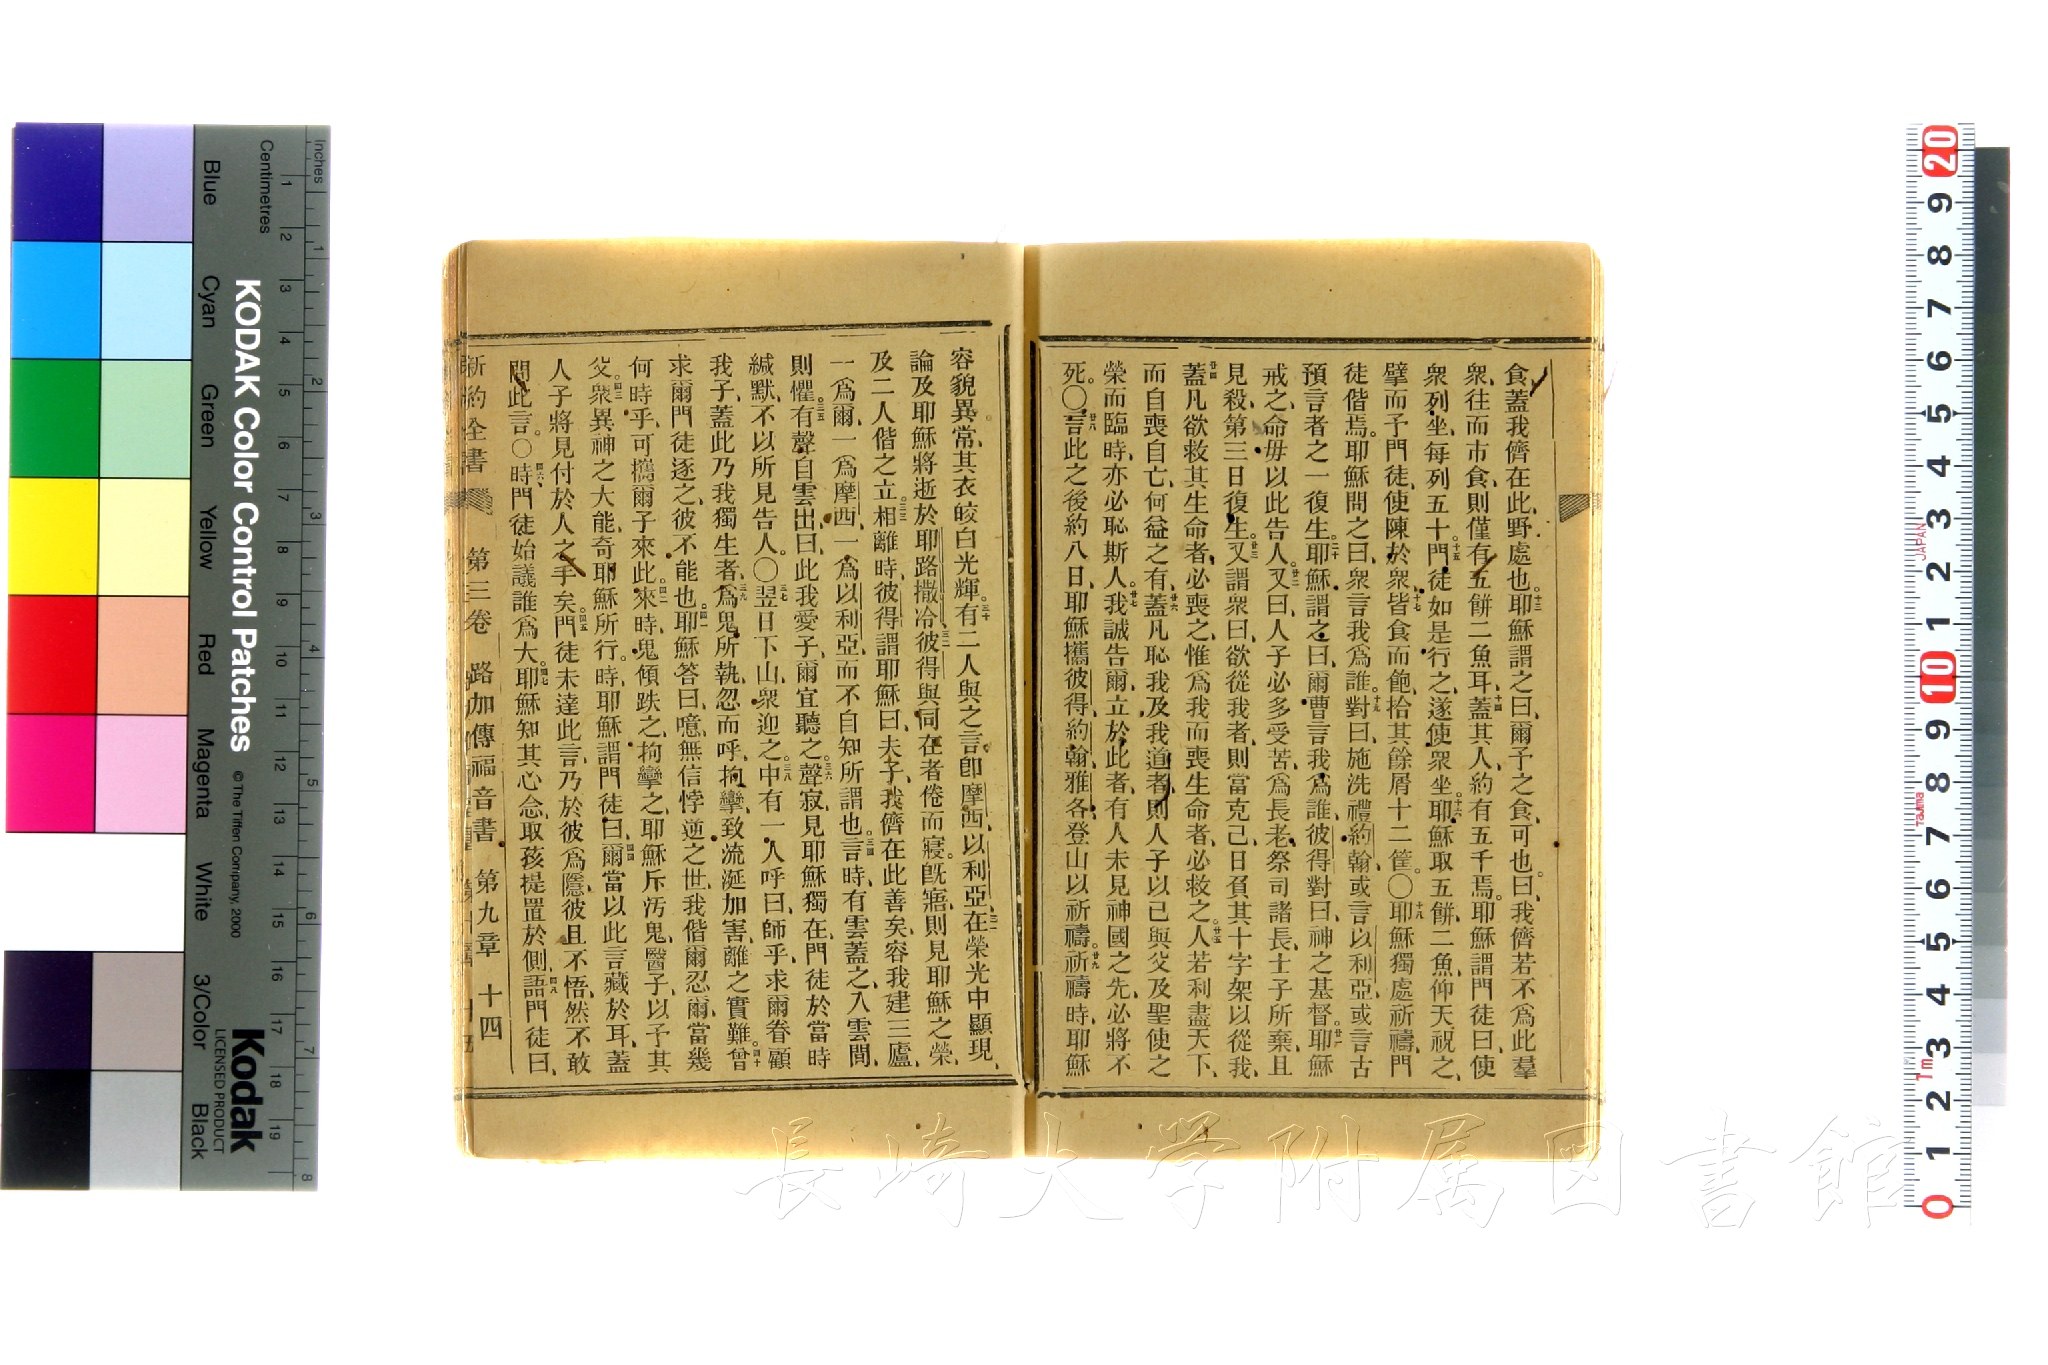 食、蓋我儕在此、野處也、十三耶穌謂之曰、爾予之食、可也、曰、我儕若不爲此羣
衆、往而市食、則僅有五餅二魚耳、十四蓋其人、約有五千焉、耶穌謂門徒曰、使
衆列坐、每列五十、十五門徒如是行之、遂使衆坐、十六耶穌取五餅二魚、仰天祝之、
擘而予門徒、使陳於衆、十七皆食而飽、拾其餘屑十二筐。〇十八耶穌獨處祈禱、門
徒偕焉、耶穌問之曰、衆言我爲誰、十九對曰、施洗禮約翰、或言以利亞、或言古
預言者之一復生、二十耶穌謂之曰、爾曹言我爲誰、彼得對曰、神之基督、廿一耶穌
戒之、命毋以此告人、廿二又曰、人子必多受苦、爲長老、祭司諸長、士子所棄、且
見殺、第三日復生、廿三又謂衆曰、欲從我者、則當克己、日負其十字架以從我、
廿四蓋凡欲救其生命者、必喪之、惟爲我而喪生命者、必救之、廿五人若利盡天下、
而自喪自亡、何益之有、廿六蓋凡恥我及我道者、則人子以己與父及聖使之
榮而臨時、亦必恥斯人、廿七我誠告爾、立於此者、有人未見神國之先、必將不
死。〇廿八言此之後、約八日、耶穌攜彼得、約翰、雅各、登山以祈禱、廿九祈禱時、耶穌
容貌異常、其衣皎白光輝、三十有二人與之言、卽摩西、以利亞、三一在榮光中顯現、
論及耶穌將逝於耶路撒冷、三二彼得與同在者倦而寢、旣寤、則見耶穌之榮、
及二人偕之立、三三相離時、彼得謂耶穌曰、夫子、我儕在此善矣、容我建三廬、
一爲爾、一爲摩西、一爲以利亞、而不自知所謂也、三四言時、有雲蓋之、入雲間、
則懼、三五有聲自雲出、曰、此我愛子、爾宜聽之、三六聲寂、見耶穌獨在、門徒於當時
緘默、不以所見告人。〇三七翌日下山、衆迎之、三八中有一人呼曰、師乎、求爾眷顧
我子、蓋此乃我獨生者、三九爲鬼所執、忽而呼、拘攣、致流涎加害、離之實難、四十曾
求爾門徒逐之、彼不能也、四一耶穌答曰、噫、無信悖逆之世、我偕爾忍爾、當幾
何時乎、可攜爾子來此、四二來時、鬼傾跌之、拘攣之、耶穌斥汚鬼、醫子、以予其
父、四三衆異神之大能、奇耶穌所行、時耶穌謂門徒曰、四四爾當以此言藏於耳、蓋
人子將見付於人之手矣、四五門徒未達此言、乃於彼爲隱、彼且不悟、然不敢
問此言。〇四六時門徒始議誰爲大、四七耶穌知其心念、取孩提置於側、四八語門徒曰、
新約全書 第三卷 路加傳福音書 第九章 十四
KODAK Color Control Patches
© The Tiffen Company, 2000
Kodak
LICENSED PRODUCT
Inches
Centimetres
Blue Cyan Green Yellow Red Magenta White 3/Color Black
1 2 3 4 5 6 7 8 9 10 11 12 13 14 15 16 17 18 19
1 2 3 4 5 6 7 8
20 9 8 7 6 5 4 3 2 1 10 9 8 7 6 5 4 3 2 1 0
JAPAN
Tajima
1m
長崎大学附属図書館